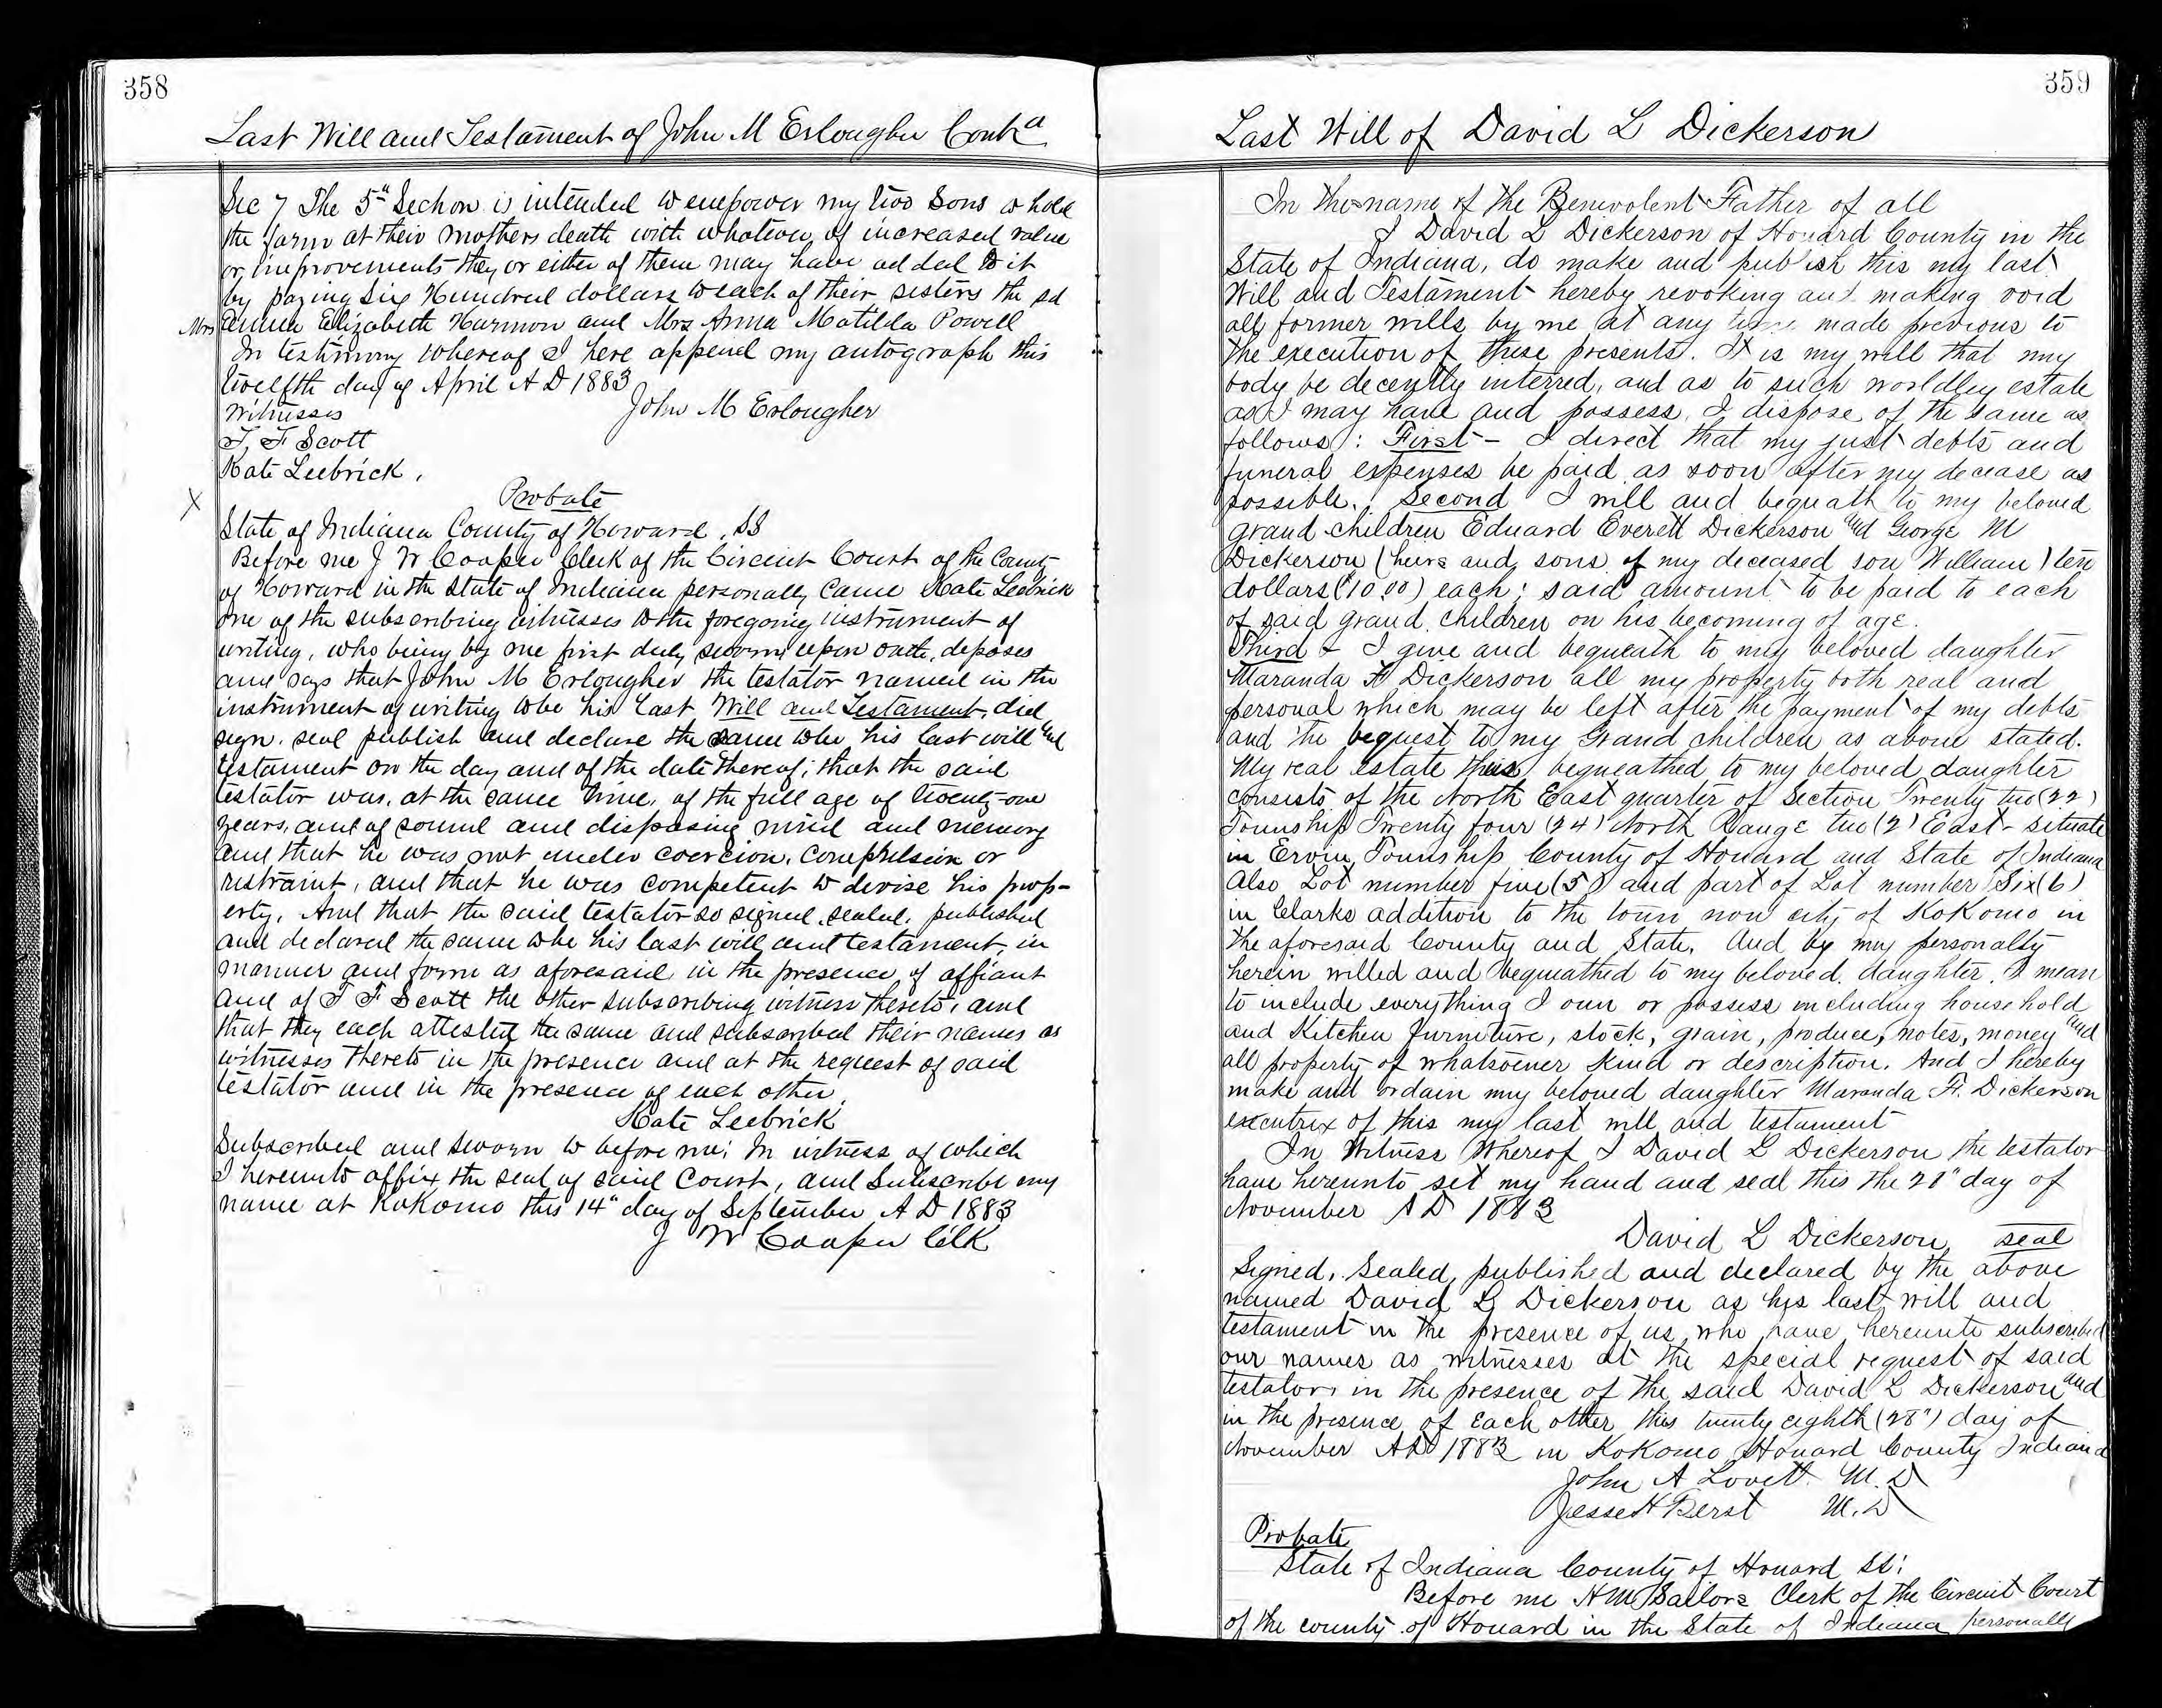 358
Last Will and Testament of John M Erlougher Cont<sup>d</sup>
Sec 7 The 5" Section is intended to empower my two Sons to hold
the farm at their mothers death with whatever of increased value
or improvements they or either of them may have added to it
by paying Six Hundred dollars to each of their sisters the sd
Mrs Emma Elizabeth Harmon and Mrs Anna Matilda Powell
In testimony whereof I here append my autograph this
twelfth day of April A D 1883
John M Erlougher
Witnesses
T. F Scott
Kate Leebrick.
Probate
X
State of Indiana County of Howard, SS
Before me J W Cooper Clerk of the Circuit Court of the County
of Howard in the State of Indiana personally came Kate Leebrick
one of the subscribing witnesses to the foregoing instrument of
writing, who being by me first duly sworn upon oath, deposes
and says that John M Erlougher the testator named in the
instrument of writing to be his Last Will and Testament, did
sign, seal publish and declare the same to be his last will and
testament on the day and of the date thereof; that the said
testator was, at the same time, of the full age of twenty-one
years, and of sound and disposing mind and memory
and that he was not under coercion, compulsion or
restraint, and that he was competent to devise his prop-
erty. And that the said testator so signed, sealed, published
and declared the same to be his last will and testament, in
manner and form as aforesaid in the presence of affiant
and of T F Scott the other subscribing witness thereto, and
that they each attested the same and subscribed their names as
witnesses thereto in the presence and at the request of said
testator and in the presence of each other.
Kate Leebrick
Subscribed and sworn to before me; In witness of which
I hereunto affix the seal of said Court, and Subscribe my
name at Kokomo this 14" day of September A D 1883
J W Cooper Clk
359
Last Will of David L Dickerson
In the name of the Benevolent Father of all
I David L Dickerson of Howard County in the
State of Indiana, do make and publish this my last
Will and Testament hereby revoking and making void
all former wills by me at any time made previous to
the execution of these presents. It is my will that my
body be decently interred, and as to such worldley estate
as I may have and possess, I dispose of the same as
follows: First- I direct that my just debts and
funeral expenses be paid as soon after my decease as
possible. Second I will and bequath to my beloved
grand children Eduard Everett Dickerson and George M
Dickerson (heirs and sons of my deceased son William) ten
dollars ($10.00) each; said amount to be paid to each
of said grand children on his becoming of age.
Third - I give and bequeath to my beloved daughter
Maranda F. Dickerson all my property both real and
personal which may be left after the payment of my debts
and the bequest to my Grand children as above stated.
My real estate thus bequeathed to my beloved daughter
consists of the North East quarter of Section Twenty two (22)
Township Twenty four (24) North Range two (2) East - situate
in Ervin Township County of Howard and State of Indiana
Also Lot number five (5) and part of Lot number Six (6)
in Clarks addition to the town now city of Kokomo in
the aforesaid County and State. And by my personalty
herein willed and bequeathed to my beloved daughter I mean
to include everything I own or possess including household
and Kitchen furniture, stock, grain, produce, notes, money and
all property of whatsoever kind or description. And I hereby
make and ordain my beloved daughter Maranda F. Dickerson
executrix of this my last will and testament
In Witness Whereof I David L Dickerson the testator
have hereunto set my hand and seal this the 28" day of
November A D 1883
David L Dickerson seal
Signed, Sealed, published and declared by the above
named David L Dickerson as his last will and
testament in the presence of us who have hereunto subscribed
our names as witnesses at the special request of said
testator in the presence of the said David L Dickerson and
in the presence of each other this twenty eighth (28") day of
November AD 1883 in Kokomo Howard County Indiana
John A Lovett M. D
Jesse H Berst M. D
Probate
State of Indiana County of Howard SS:
Before me H M Sailors Clerk of the Circuit Court
of the county of Howard in the State of Indiana personally